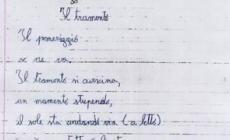 Il tramonto
Il pomeriggio
se ne va.
Il tramonto si avvicina,
un momento stupendo,
il sole sta andando via (a letto)